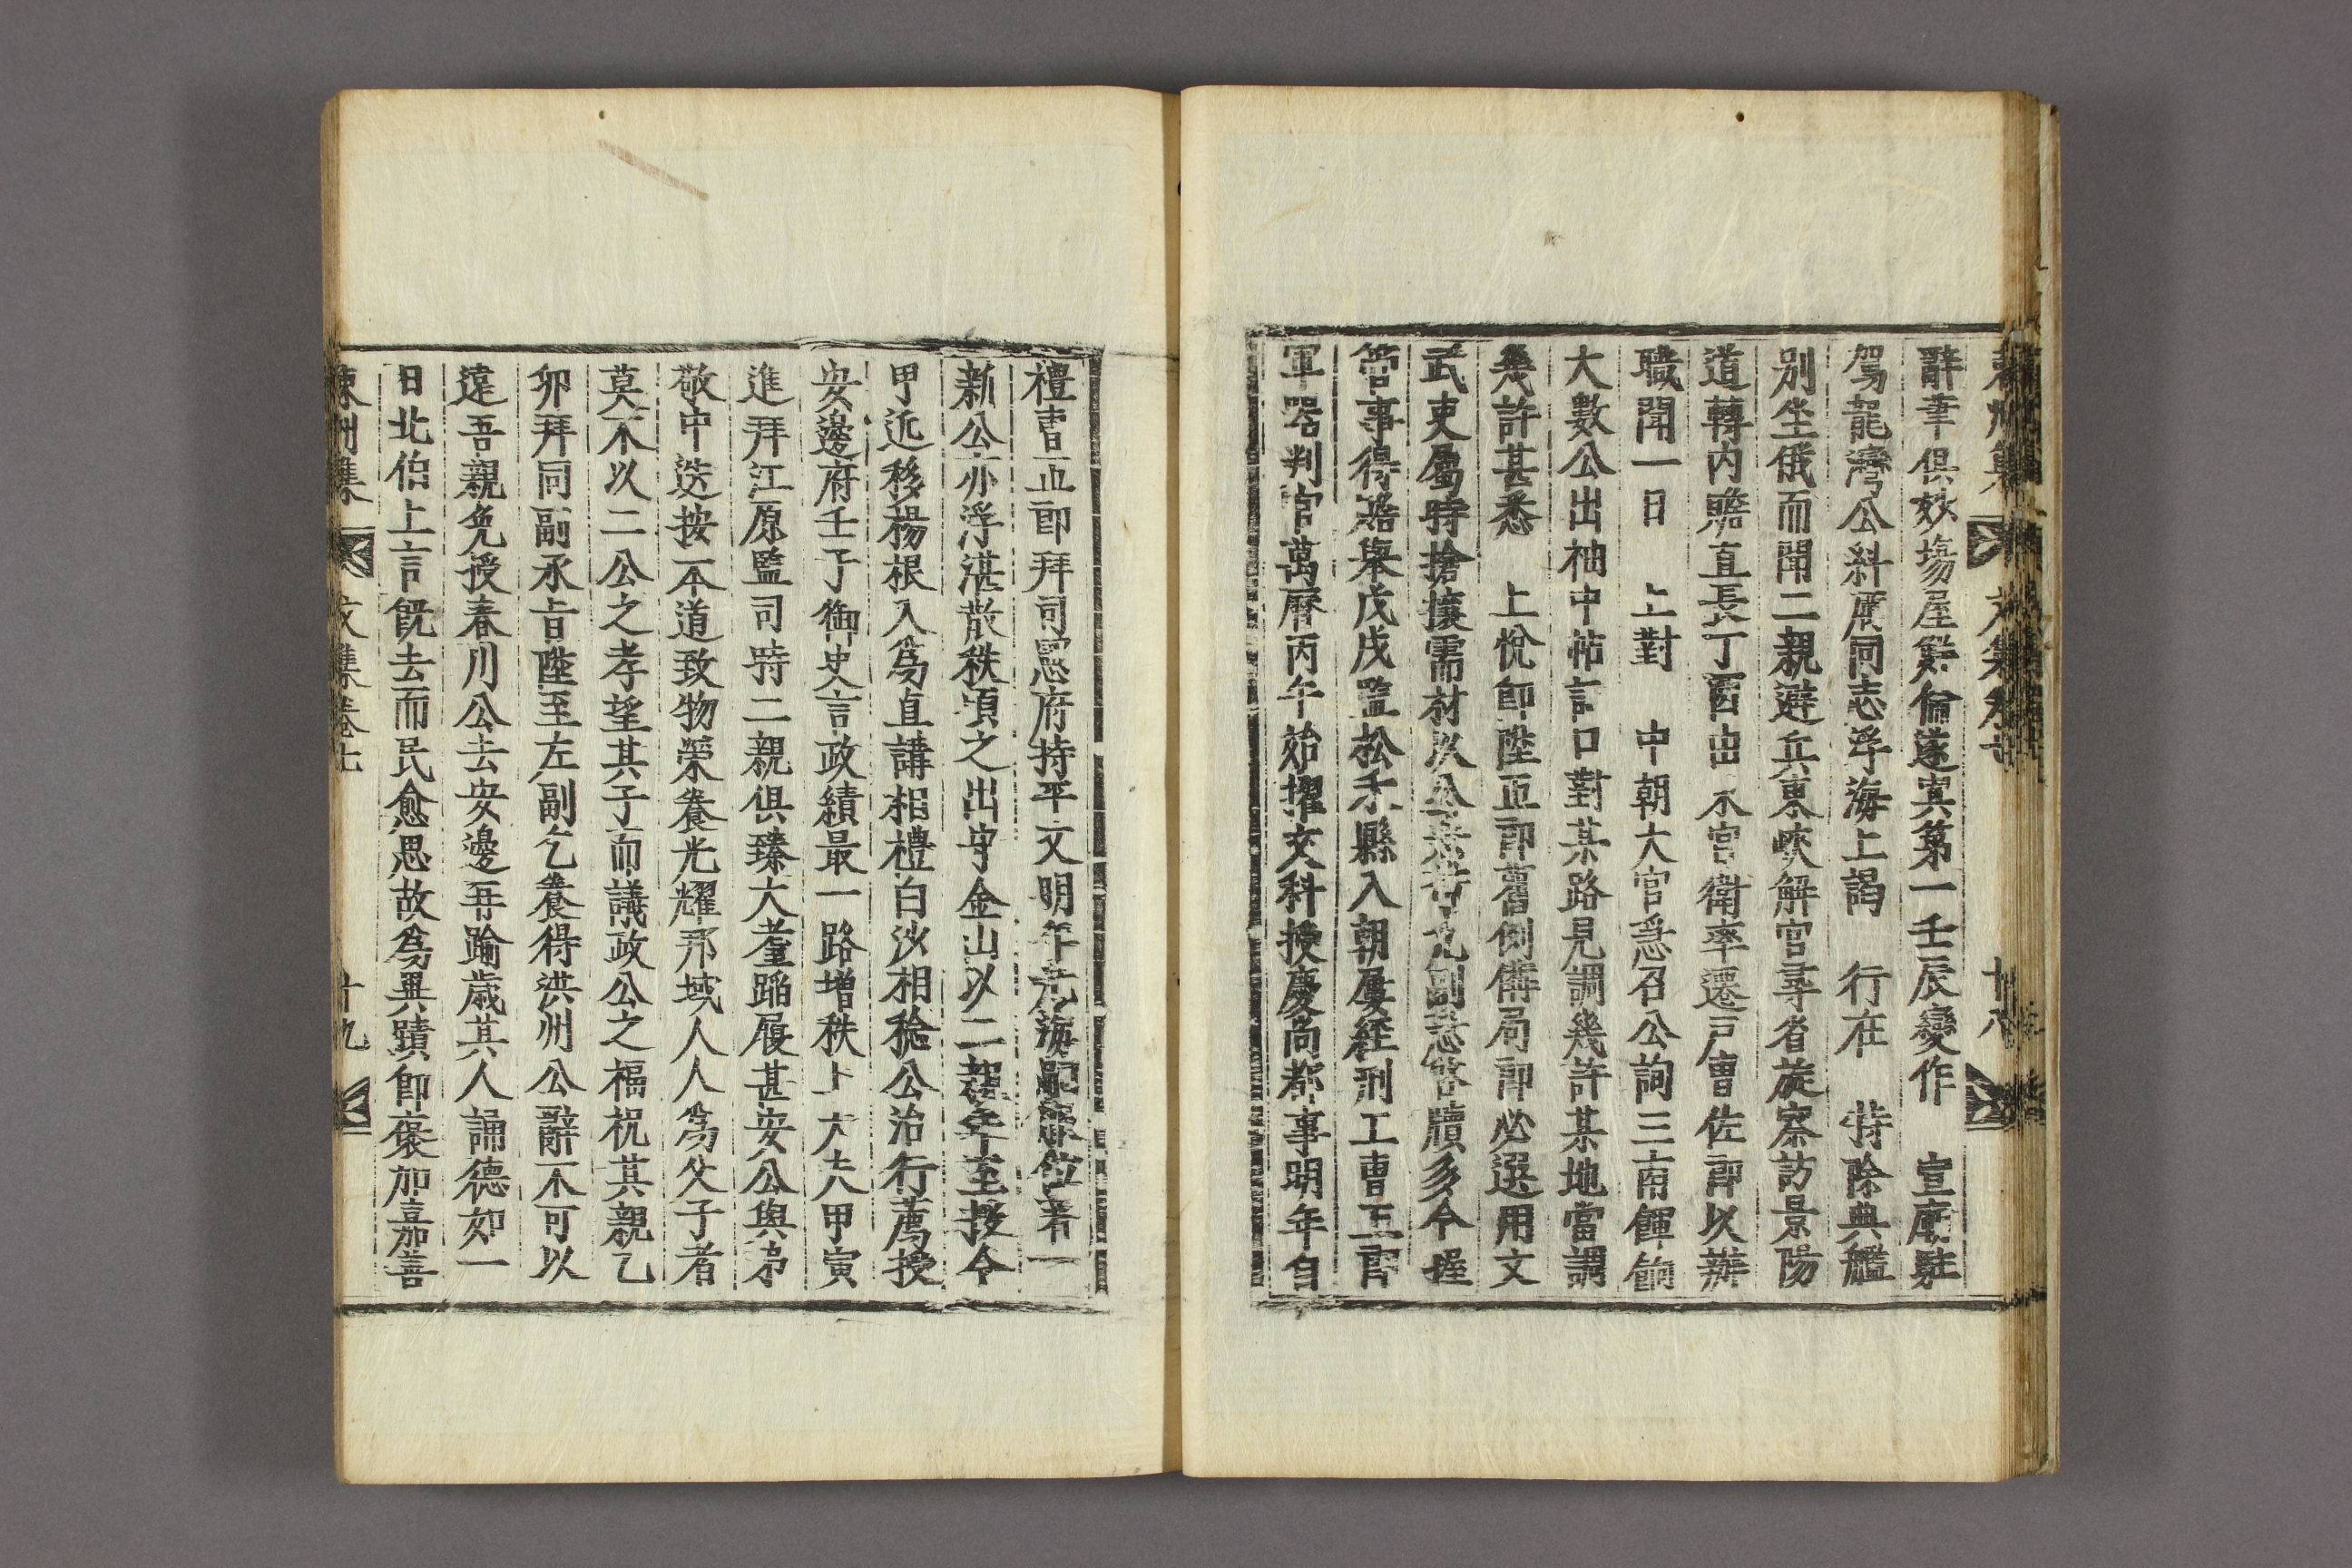 東州集 文集卷七 十八
辭率俱妙塲屋鮮倫遂寘第一壬辰變作 宣廟駐
駕龍灣公糾厲同志浮海上謁 行在 特除典艦
別坐俄而聞二親避兵東峽解官尋省旋察訪景陽
道轉內贍直長丁酉由 宮衛率遷戶曹佐郎以辦
職聞一日 上對 中朝大官急召公詢三南餫餉
大數公出袖中帖言口對某路見調幾許某地當調
幾許甚悉 上悅卽陞正郎舊例備局郎必選用文
武吏屬時搶攘需材以公 副急啓牘多令握
管事得無舉戊戌監松禾縣入朝屢經刑工曹正郎
軍器判官萬曆丙午始擢文科授慶尙都事明年自
禮曹正郎拜司憲府持平文明年光海嗣位著一
新公亦浮湛散秩頃之出守金山以二親年至授令
甲近移楊根入爲直講相禮白沙相稔公治行薦授
安邊府壬子御史言政績最一路增秩上大夫甲寅
進拜江原監司時二親俱臻大耋蹈履甚安公與弟
敬中迭按一本道致物榮養光耀邦域人人爲父子者
莫不以二公之孝望其子而議政公之福祝其親乙
卯拜同副承旨陞至左副乞養得洪州公辭不可以
遠吾親免授春川公去安邊再踰歲其人誦德如一
日北伯上言旣去而民愈思故爲異蹟卽褒加嘉善
東州集 文集卷七 十九